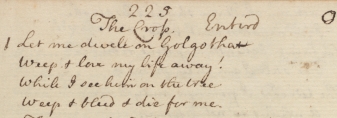 225
The Cross. Enterd
1 Let me dwell on Golgotha
Weep & love my life away!
While I see him on the tree
Weep & bleed & die for me.